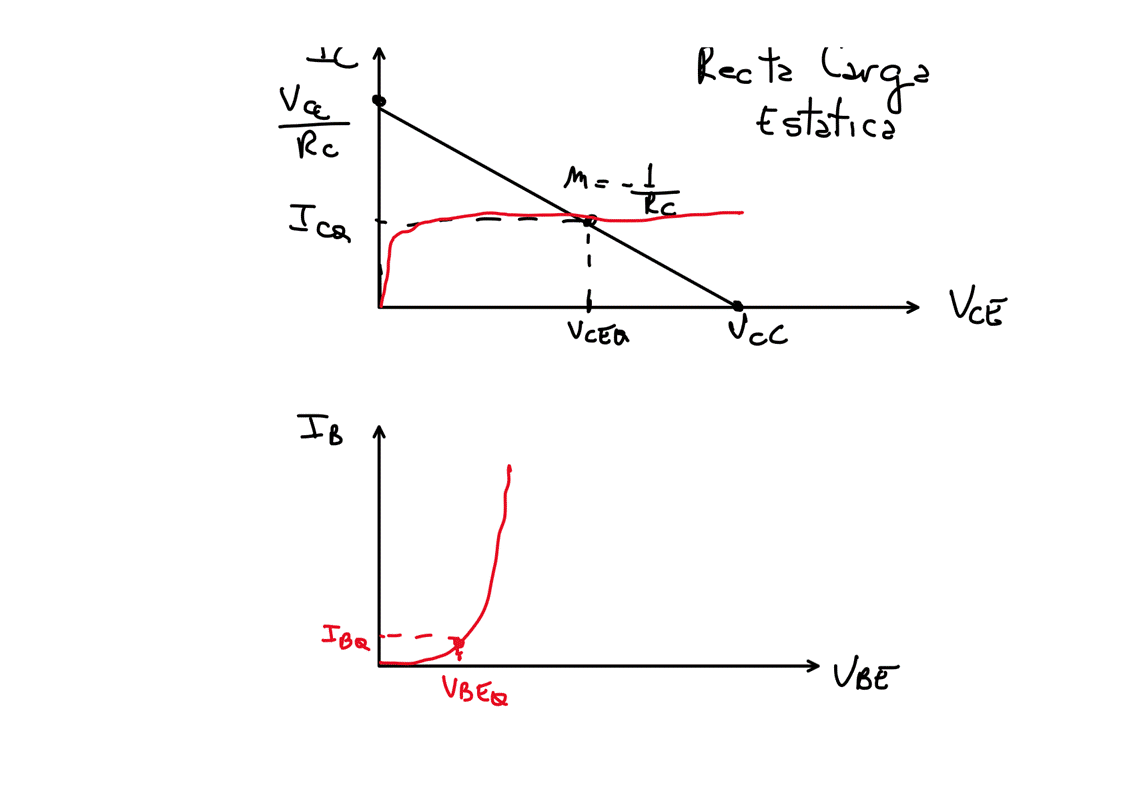 IC
Recta Carga
Estatica
VCE
RC
m = - 1
RC
ICQ
VCE
VCEQ
VCC
IB
IBQ
VBE
VBEQ